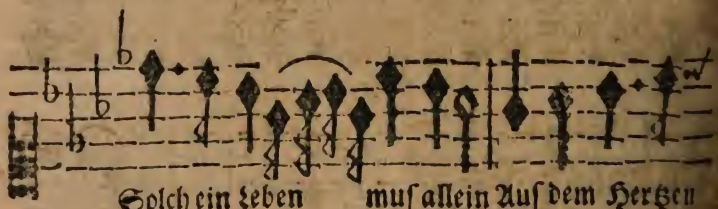 Solch ein Leben muſ allein Auſ dem Hertzen